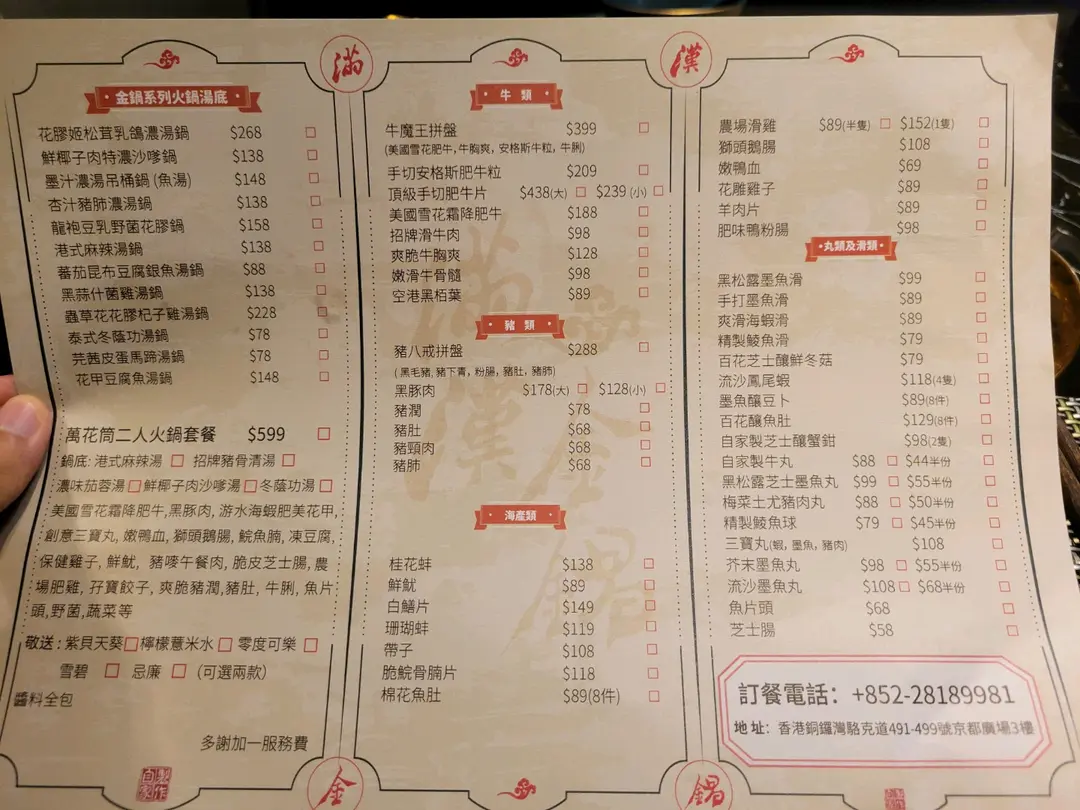 滿
漢
金鍋系列火鍋湯底
花膠姬松茸乳鴿濃湯鍋 $268
鮮椰子肉特濃沙嗲鍋 $138
墨汁濃湯吊桶鍋 (魚湯) $148
杏汁豬肺濃湯鍋 $138
龍袍豆乳野菌花膠鍋 $158
港式麻辣湯鍋 $138
蕃茄昆布豆腐銀魚湯鍋 $88
黑蒜什菌雞湯鍋 $138
蟲草花花膠杞子雞湯鍋 $228
泰式冬蔭功湯鍋 $78
芫茜皮蛋馬蹄湯鍋 $78
花甲豆腐魚湯鍋 $148
萬花筒二人火鍋套餐 $599
鍋底: 港式麻辣湯 招牌豬骨清湯
濃味茄蓉湯 鮮椰子肉沙嗲湯 冬蔭功湯
美國雪花霜降肥牛,黑豚肉, 游水海蝦肥美花甲,
創意三寶丸, 嫩鴨血, 獅頭鵝腸, 鯇魚腩, 凍豆腐,
保健雞子, 鮮魷, 豬嘜午餐肉, 脆皮芝士腸, 農
場肥雞, 孖寶餃子, 爽脆豬潤,豬肚, 牛脷, 魚片
頭,野菌,蔬菜等
敬送 : 紫貝天葵 檸檬薏米水 零度可樂
雪碧 忌廉 (可選兩款)
醬料全包
多謝加一服務費
牛 類
牛魔王拼盤 $399
(美國雪花肥牛, 牛胸爽, 安格斯牛粒, 牛脷)
手切安格斯肥牛粒 $209
頂級手切肥牛片 $438(大) $239 (小)
美國雪花霜降肥牛 $188
招牌滑牛肉 $98
爽脆牛胸爽 $128
嫩滑牛骨髓 $98
空港黑栢葉 $89
豬 類
豬八戒拼盤 $288
( 黑毛豬, 豬下青 , 粉腸, 豬肚, 豬肺)
黑豚肉 $178(大) $128(小)
豬潤 $78
豬肚 $68
豬頸肉 $68
豬肺 $68
海產類
桂花蚌 $138
鮮魷 $89
白鱔片 $149
珊瑚蚌 $119
帶子 $108
脆鯇骨腩片 $118
棉花魚肚 $89(8件)
農場滑雞 $89(半隻) $152(1隻)
獅頭鵝腸 $108
嫩鴨血 $69
花雕雞子 $89
羊肉片 $89
肥味鴨粉腸 $98
丸類及滑類
黑松露墨魚滑 $99
手打墨魚滑 $89
爽滑海蝦滑 $89
精製鯪魚滑 $79
百花芝士釀鮮冬菇 $79
流沙鳳尾蝦 $118(4隻)
墨魚釀豆卜 $89(8件)
百花釀魚肚 $129(8件)
自家製芝士釀蟹鉗 $98(2隻)
自家製牛丸 $88 $44半份
黑松露芝士墨魚丸 $99 $55半份
梅菜土尤豬肉丸 $88 $50半份
精製鯪魚球 $79 $45半份
三寶丸(蝦, 墨魚, 豬肉) $108
芥末墨魚丸 $98 $55半份
流沙墨魚丸 $108 $68半份
魚片頭 $68
芝士腸 $58
訂餐電話: +852-28189981
地址: 香港銅鑼灣駱克道491-499號京都廣場3樓
金
鍋